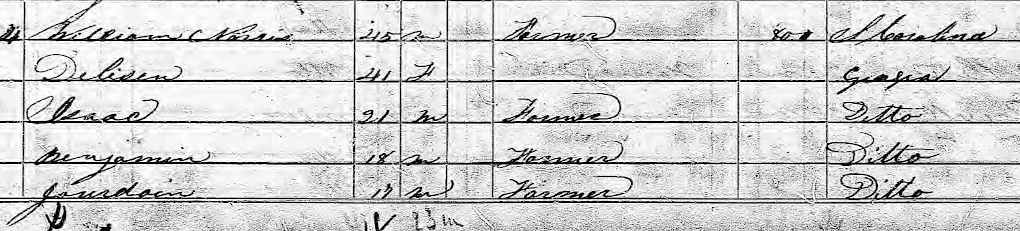 William C Norris 45 m Farmer 800 S Carolina
Delisen 41 F Gorgia
Isaac 21 m Farmer Ditto
Benjamin 18 m Farmer Ditto
Jourdain 17 M Farmer Ditto
23 m